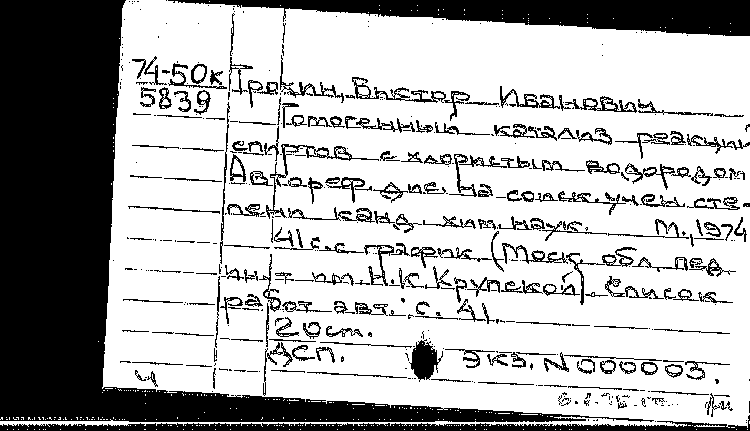 74-50к
5839
Трохин, Виктор Иванович.
Гомогенный катализ реакции
спиртов с хлористым водородом
Автореф. дис. на соиск. учен. сте-
пени канд. хим. наук. М., 1974
41 с. с график. (Моск. обл. пед
ин-т им. Н. К. Крупской). Список
работ авт.: с. 41.
20см.
ДСП. экз. N 000003.
ч